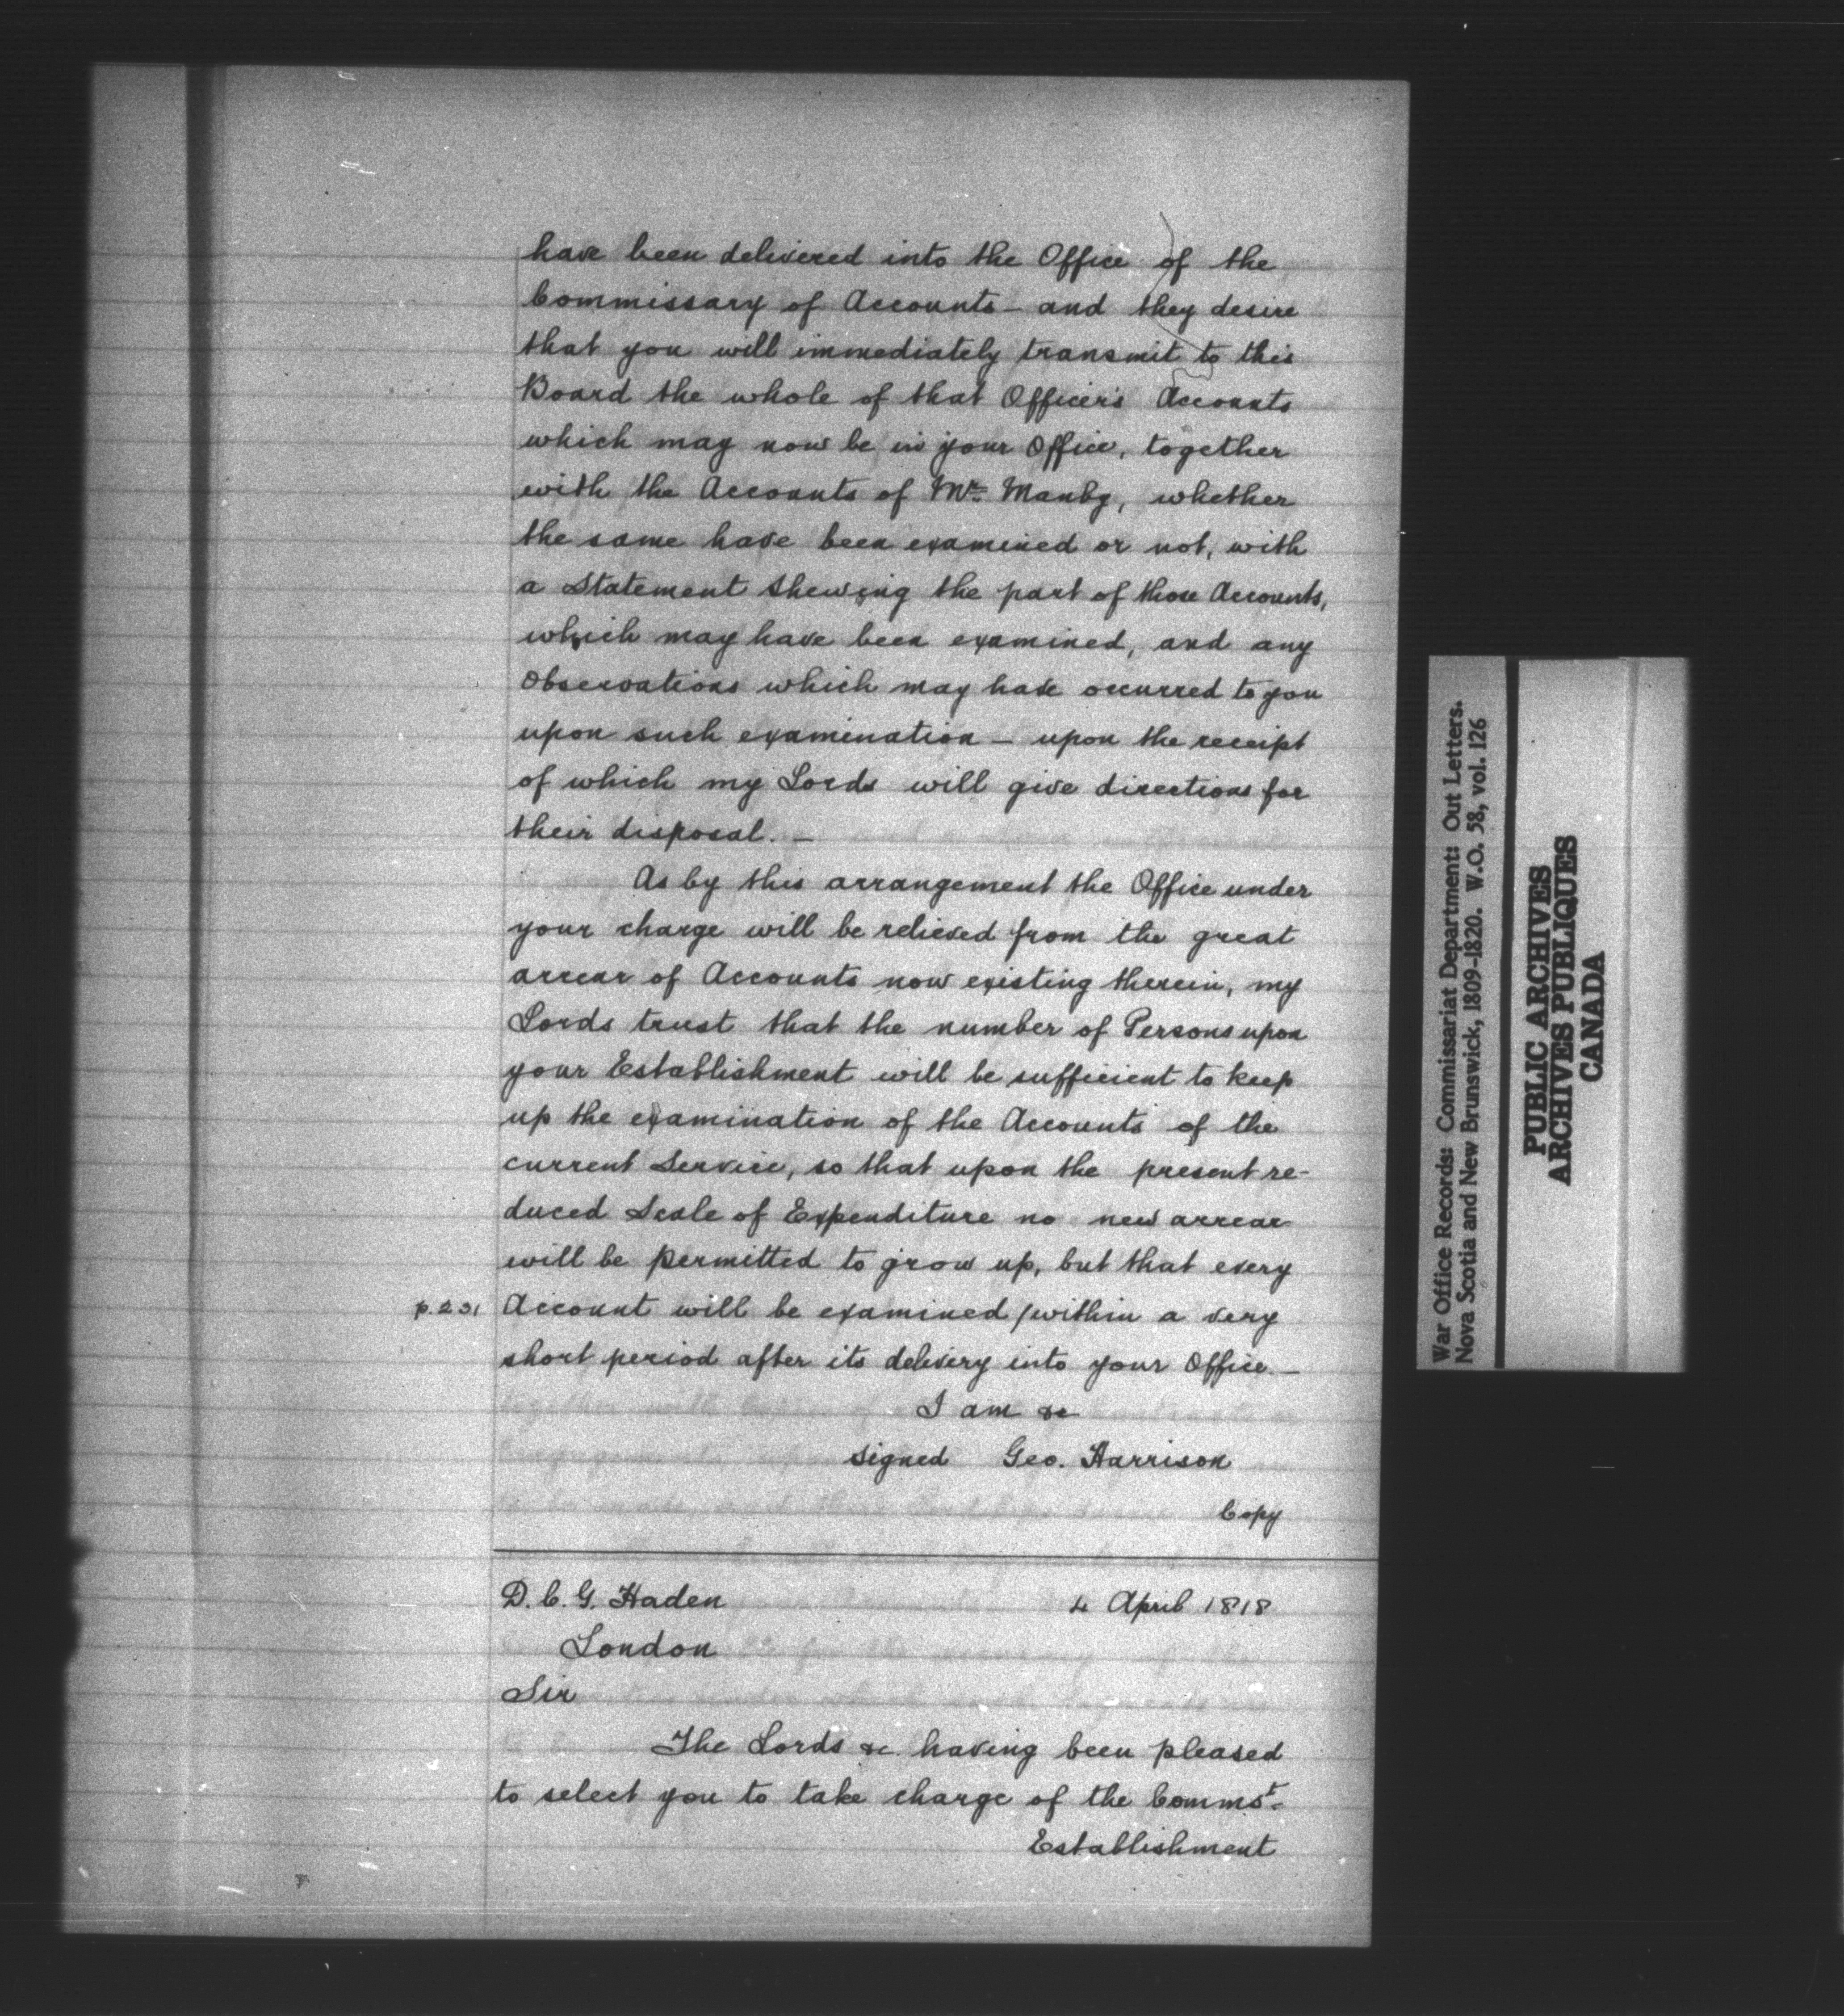 have been delivered into the Office of the
Commissary of Accounts – and they desire
that you will immediately transmit to this
Board the whole of that Officer's Accounts
which may now be in your Office, together
with the Accounts of Mr. Manby, whether
the same have been examined or not, with
a Statement shewing the part of those Accounts,
which may have been examined, and any
Observations which may have occurred to you
upon such examination – upon the receipt
of which my Lords will give directions for
their disposal. –
As by this arrangement the Office under
your charge will be relieved from the great
arrear of Accounts now existing therein, my
Lords trust that the number of Persons upon
your Establishment will be sufficient to keep
up the examination of the Accounts of the
current Service, so that upon the present re-
duced Scale of Expenditure no new arrear
will be permitted to grow up, but that every
p.231 Account will be examined /within a very
short period after its delivery into your Office. –
I am &c
signed Geo. Harrison
Copy
D. C. G. Haden 4 April 1818
London
Sir
The Lords &c having been pleased
to select you to take charge of the Commst.
Establishment
War Office Records: Commissariat Department: Out Letters.
Nova Scotia and New Brunswick, 1809-1820. W.O. 58, vol. 126
PUBLIC ARCHIVES
ARCHIVES PUBLIQUES
CANADA